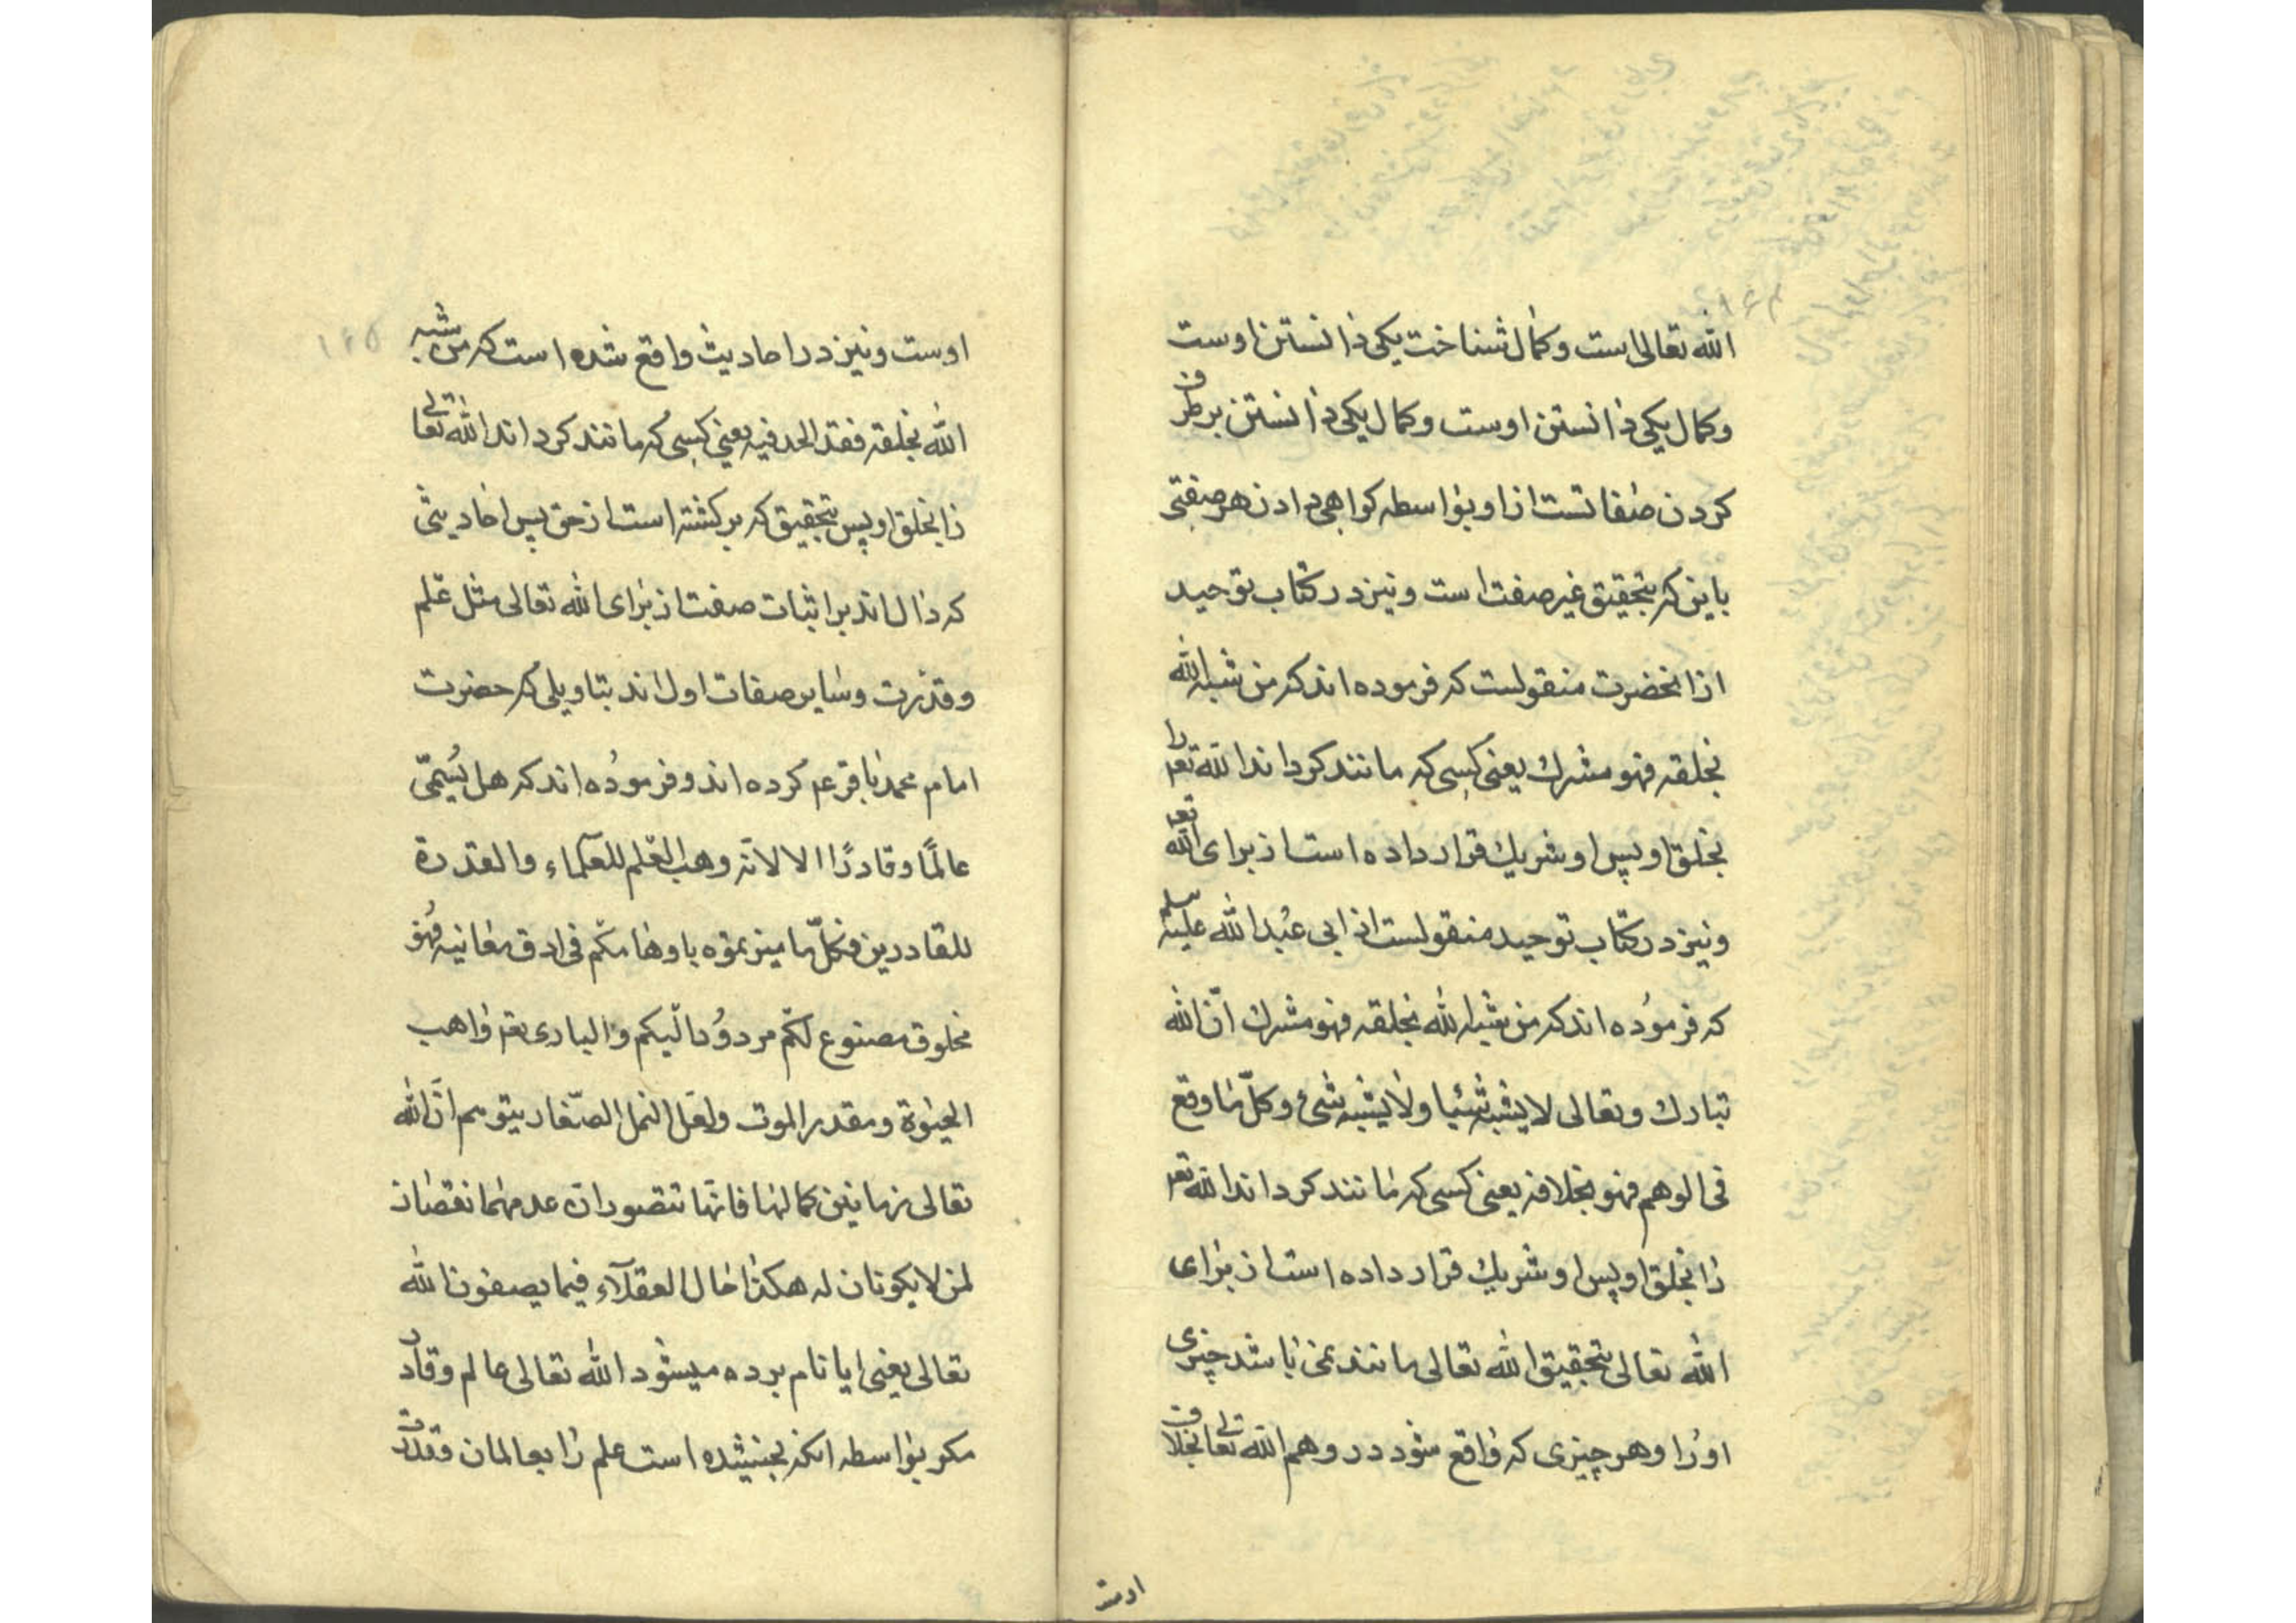 ۱۶۴
الله تعالی است و کمال شناخت یکی دانستن اوست
و کمال یکی دانستن اوست و کمال یکی دانستن بر طرف
کردن صفاتست ازاو بواسطه کواهی دادن هر صفتی
باین که بتحقیق غیر صفت است و نیز در کتاب توحید
ازانحضرت منقولست که فرموده اند که من شبه الله
بخلقه فهو مشرك یعنی کسی که مانند کرداند الله تعه را
بخلق او پس او شریك قرار داده است از برای الله تعه
و نیز در کتاب توحید منقولست از ابی عبد الله علیه سلم
که فرموده اند که من شبه الله بخلقه فهو مشرك انّ الله
تبارك وتعالی لا یشبه شیئا ولا یشبه شیء وکلّ ما وقع
فی الوهم فهو بخلافه یعنی کسی که مانند کرداند الله تعه
را بخلق او پس او شریك قرار داده است از برای
الله تعالی بتحقیق الله تعالی مانند نمی باشد چیزی
اورا و هر چیزی که واقع شود در وهم الله تعالی بخلاف
اوست
۱۶۵
اوست و نیز در احادیث واقع شده است که من شبه
الله بخلقه فقد الحد فیه یعنی کسی که مانند کرداند الله تعالی
را بخلق او پس بتحقیق که بر کشته است از حق پس احادیثی
که دال اند بر اثبات صفت از برای الله تعالی مثل علم
و قدرت و سایر صفات اول اند بتاویلی که حضرت
امام محمد باقر عم کرده اند و فرموده اند که هل یُسمّی
عالمًا و قادرًا الا لانّه وهب العلم للعلماء والقدرة
للقادرین فکلّ ما میزتموه باوهامکم فی ادق معانیه فهو
مخلوق مصنوع لکم مردوُد الیکم والباری تعم واهب
الحیوة ومقدر الموت ولعل النمل الصّغار یتوهم انّ الله
تعالی زبانیین کمالها فانّها تتصور انّ عدمهما نقصان
لمن لا یکونان له هکذا حال العقلآء فیما یصفون الله
تعالی یعنی ایا نام برده میشود الله تعالی عالم و قادر
مکر بواسطه انکه بخشیده است علم را بعالمان و قدرت